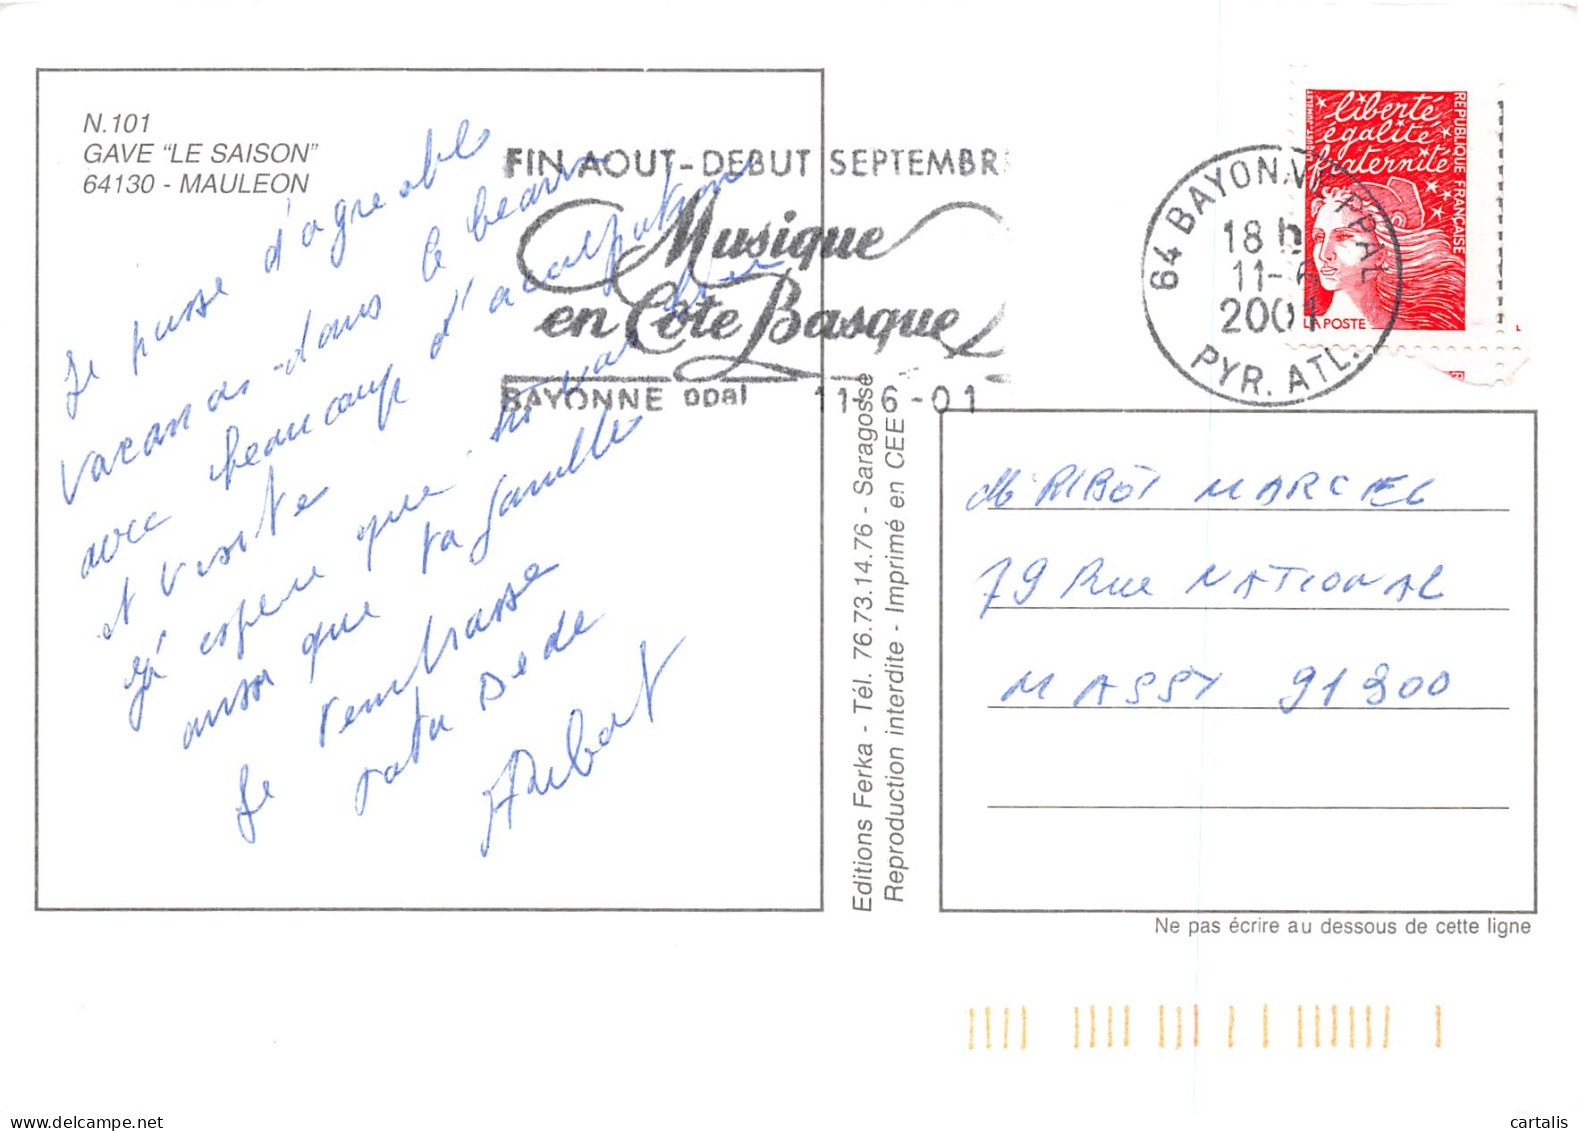 N.101
GAVE "LE SAISON"
64130 - MAULEON
Je passe d'agreable
vacances-dans le bearn
avec beaucoup d'
et visite
j'espere que tu vas bien
ainsi que ta famille
Je t'embrasse
Dede
Aubert
FIN AOUT-DEBUT SEPTEMBR
Musique
en Côte Basque
BAYONNE ppal 11-6-01
liberté
égalité
fraternité
REPUBLIQUE FRANÇAISE
LA POSTE
64 BAYONNE PPAL
18 h
11-6
2001
PYR. ATL.
Editions Ferka - Tél. 76.73.14.76 - Saragosse
Reproduction interdite - Imprimé en CEE
Mr RIBOT MARCEL
79 Rue NATIONAL
MASSY 91300
Ne pas écrire au dessous de cette ligne
cartalis